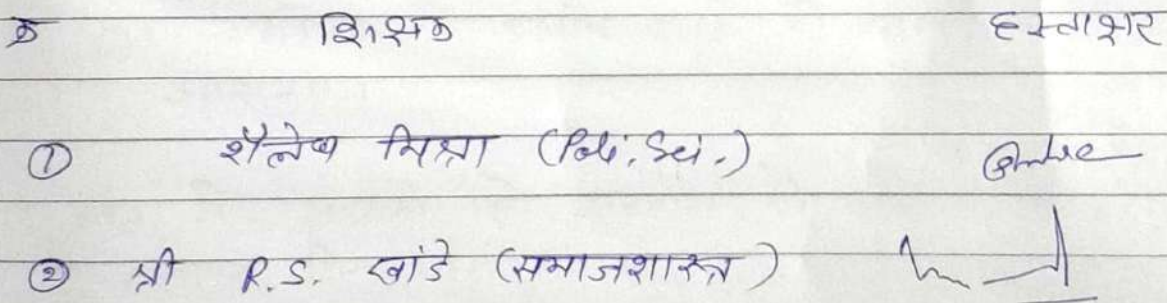 क्र शिक्षक हस्ताक्षर
① शैलेष मिश्रा (Poli. Sci.)
② श्री R.S. खांडे (समाजशास्त्र)